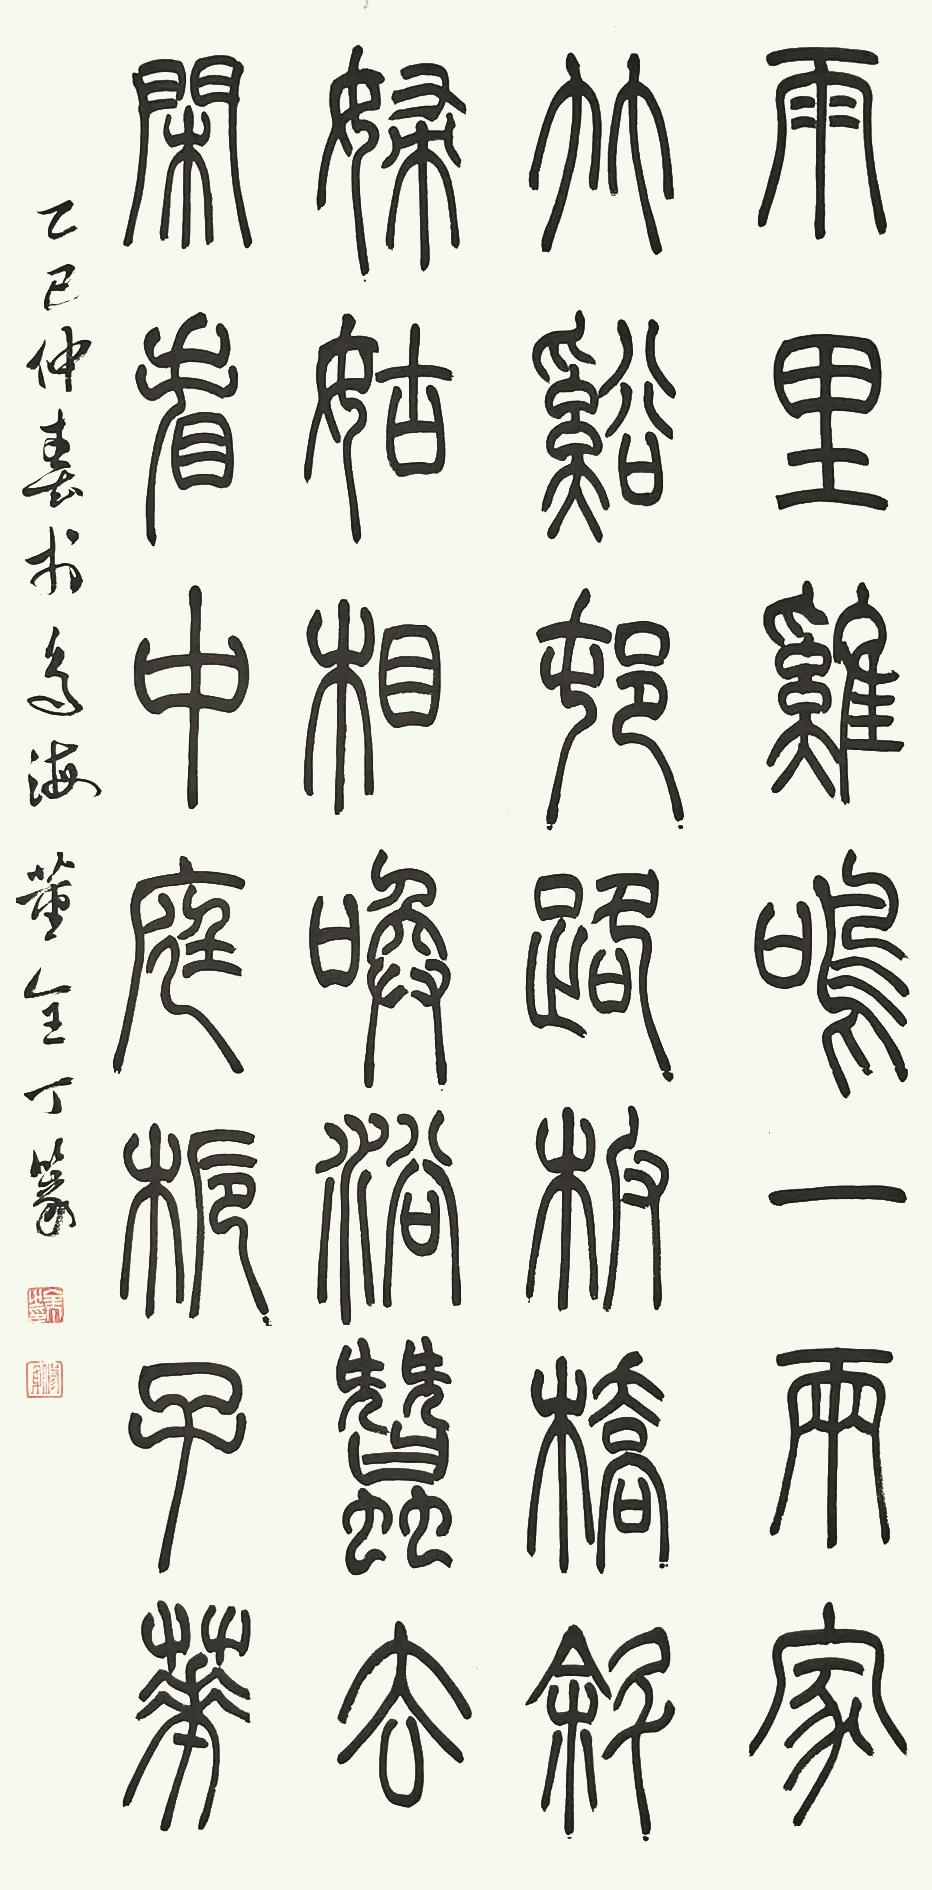 雨里雞鳴一兩家
竹谿邨路板橋斜
婦姑相喚浴蠶去
閑看中庭梔子華
乙巳仲春於烏海 董全丁篆